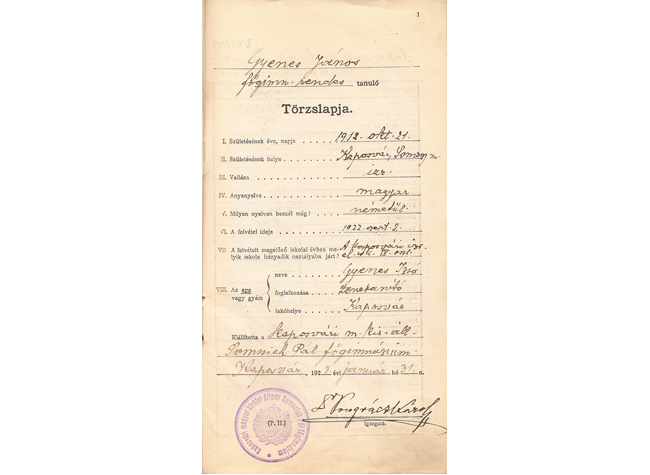 1
Gyenes János
főgimn. rendes tanuló
Törzslapja.
I. Születésének éve, napja 1912. okt. 21.
II. Születésének helye Kaposvár, Somogy m.
III. Vallása izr.
IV. Anyanyelve magyar
V. Milyen nyelven beszél még? németül.
VI. A felvétel ideje 1922. szept. 2.
VII. A felvételt megelőző iskolai évben me- A kaposvári izr.
lyik iskola hányadik osztályába járt? el. isk. IV. oszt.
VIII. Az apa vagy gyám
neve Gyenes Izsó
foglalkozása zenetanító
lakóhelye Kaposvár
Kiállította a kaposvári m. kir. áll.
Somssich Pál főgimnázium
Kaposvár, 1923. évi január hó 31. n.
(P. H.)
Dr. Pongrácz Károly
igazgató.